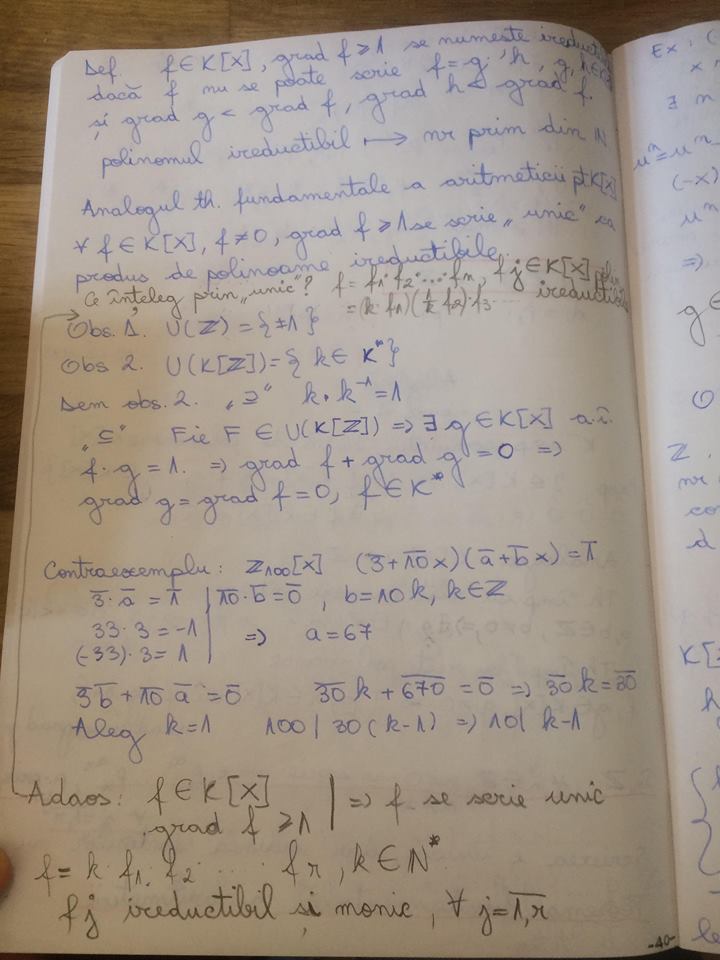 Def. f∈K[X], grad f ≥ 1 se numește ireductibil
dacă f nu se poate scrie f = g·h, g, h∈K[X]
și grad g < grad f, grad h < grad f.
polinomul ireductibil ⟼ nr prim din ℕ
Analogul th. fundamentale a aritmeticii pt K[X]
∀ f∈K[X], f≠0, grad f ≥ 1 se scrie „unic" ca
produs de polinoame ireductibile.
Ce înțeleg prin „unic"? f = f₁·f₂·...·fn, fj∈K[X]
ireductibile
= (k·f₁)(1/k f₂)·f₃...
Obs. 1. U(ℤ) = {±1}
Obs 2. U(K[ℤ]) = { k∈ K*}
Dem obs. 2. „⊇" k·k⁻¹=1
„⊆" Fie F ∈ U(K[ℤ]) => ∃ g∈K[X] a.î.
f·g = 1. => grad f + grad g = 0 =>
grad g = grad f = 0, f∈K*
Contraexemplu: ℤ₁₀₀[X] (3̅+1̅0̅x)(a̅+b̅x) = 1̅
3̅·a̅ = 1̅ | 1̅0̅·b̅ = 0̅, b=10k, k∈ℤ
33·3 = -1
=> a = 67
(-33)·3 = 1
3̅b̅ + 1̅0̅ a̅ = 0̅ 3̅0̅k + 6̅7̅0̅ = 0̅ => 3̅0̅k = 3̅0̅
Aleg k=1 100 | 30(k-1) => 10 | k-1
Adaos: f∈K[X] | => f se scrie unic
grad f ≥ 1
f = k·f₁·f₂ .... fr, k∈ℕ*
fj ireductibil și monic, ∀ j=1̅,̅r̅
-40-
Ex:
∃ n
uⁿ=uⁿ
(-x)
uⁿ
=>
g∈
O
ℤ.
nr
co
d
K[
h
le